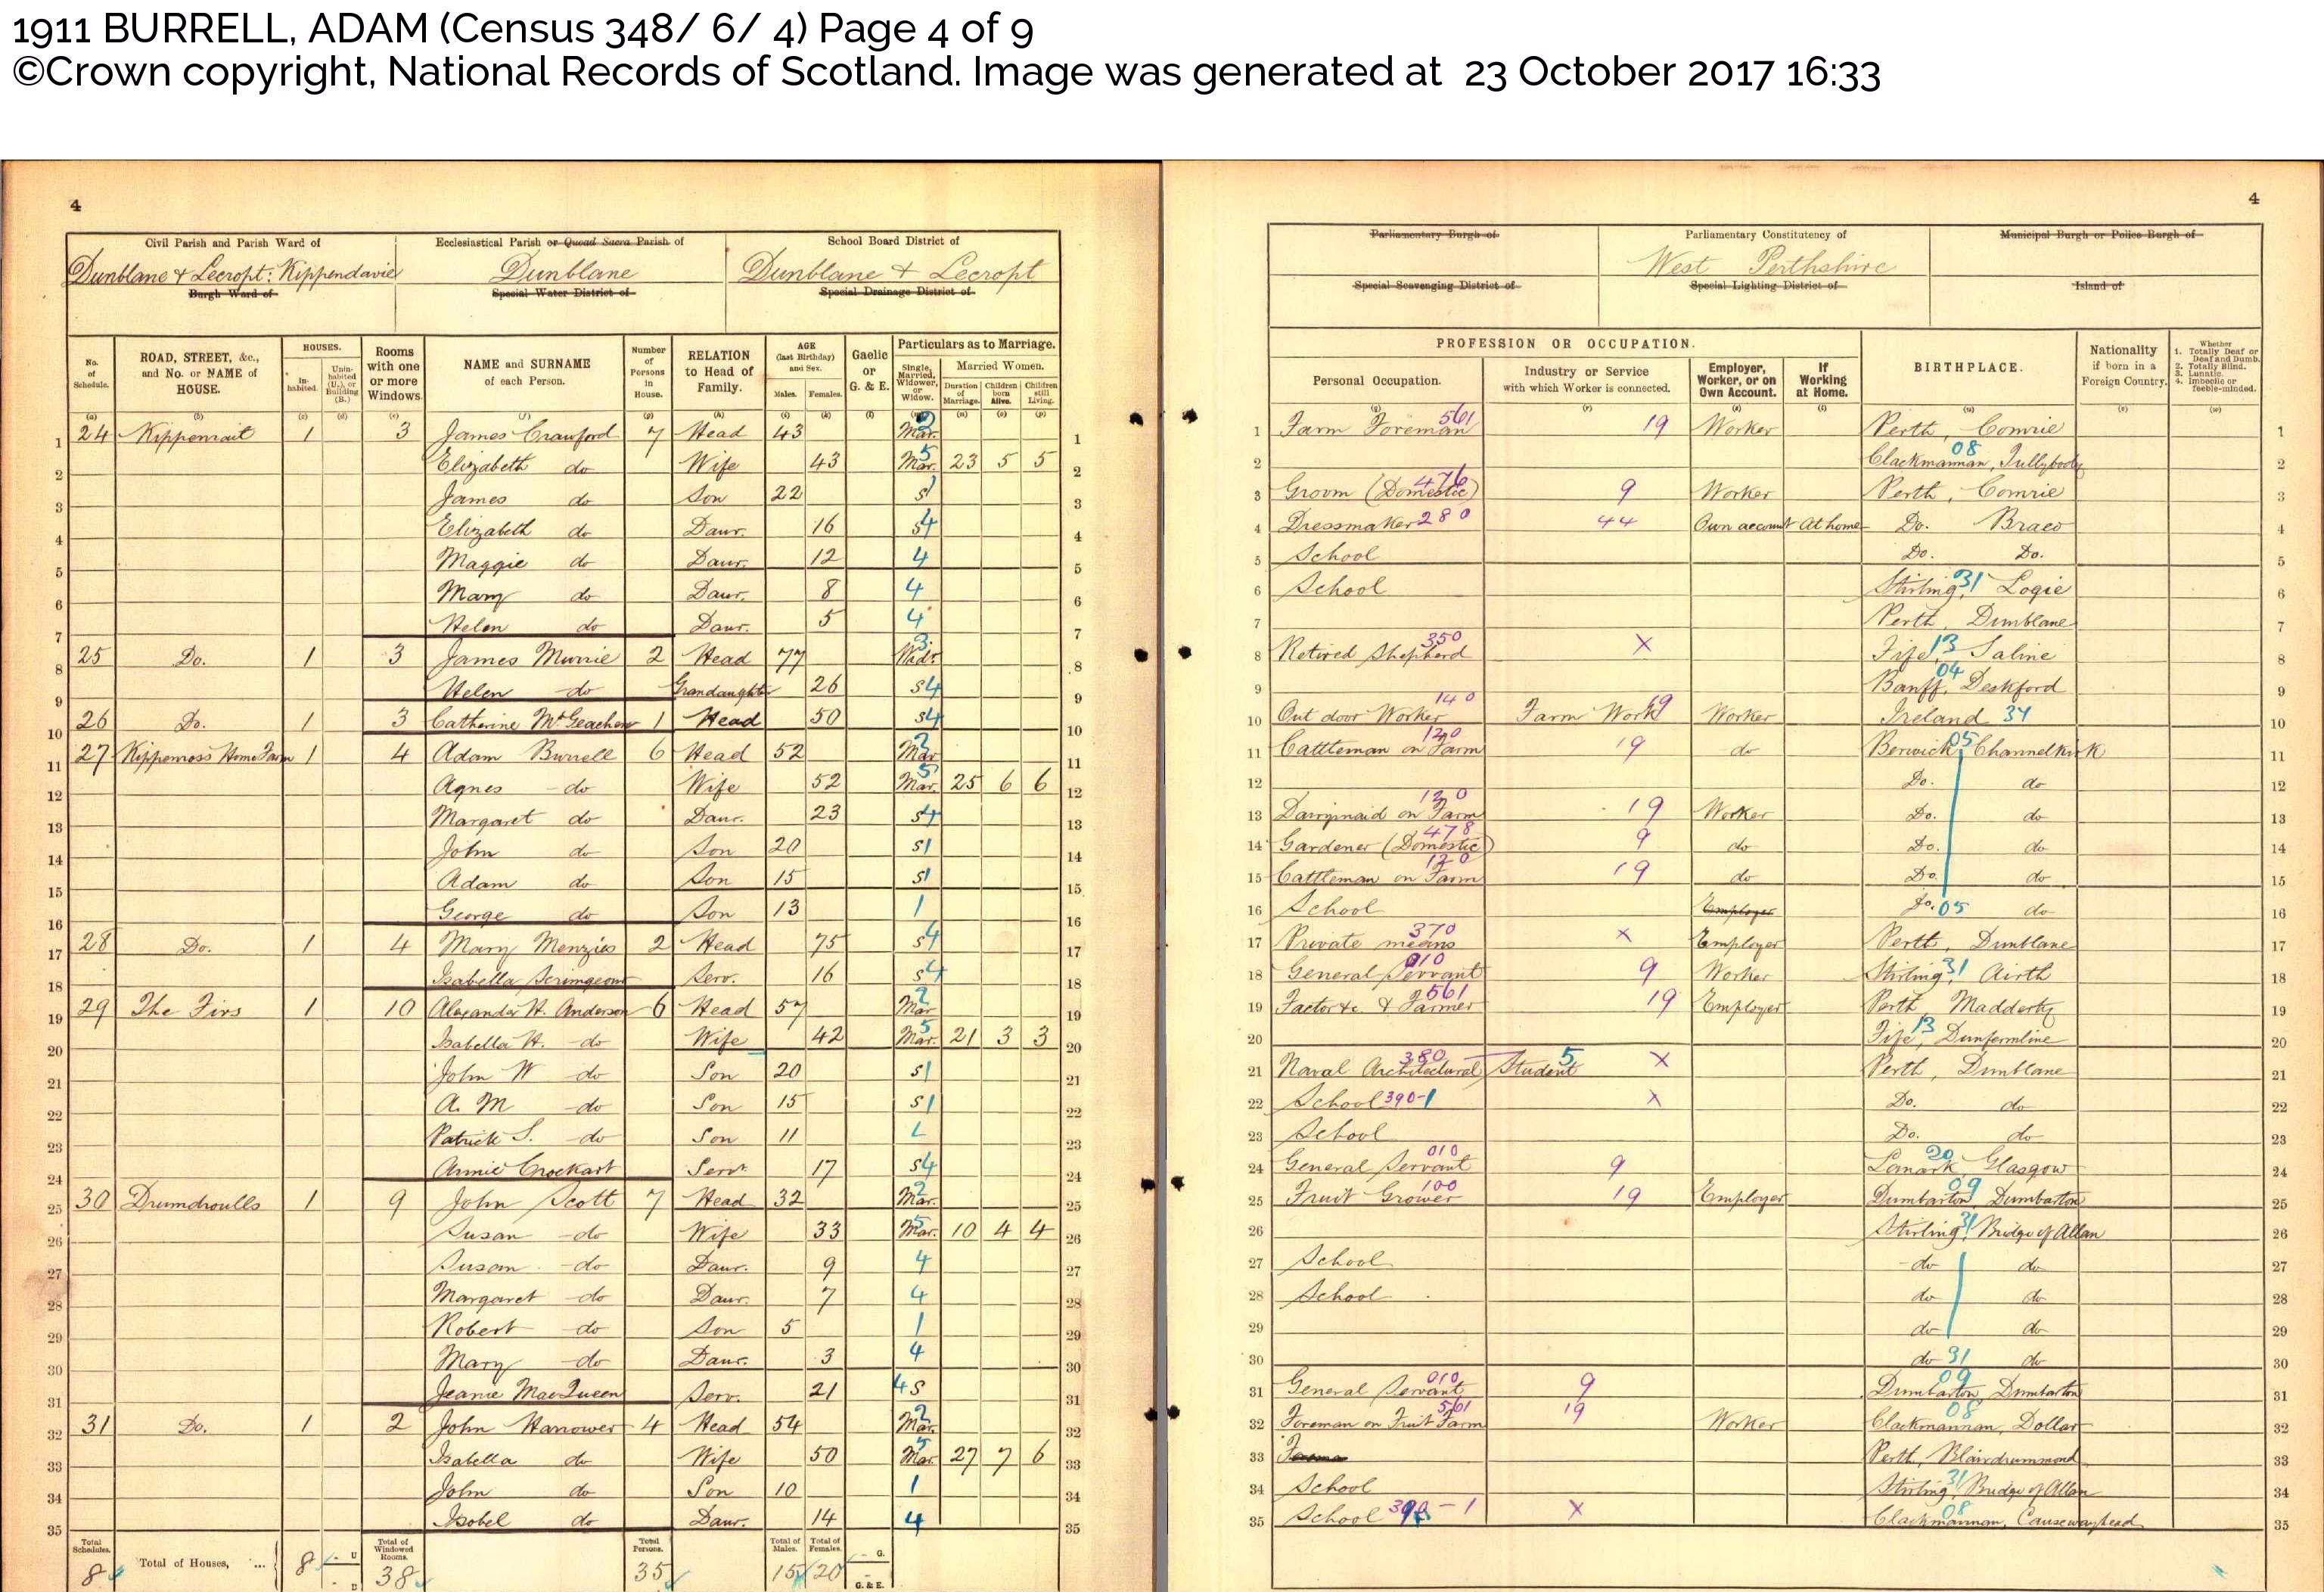 1911 BURRELL, ADAM (Census 348/ 6/ 4) Page 4 of 9
©Crown copyright, National Records of Scotland. Image was generated at 23 October 2017 16:33
4
4
Civil Parish and Parish Ward of Ecclesiastical Parish or Quoad Sacra Parish of School Board District of
Dunblane & Lecropt: Kippendavie Dunblane Dunblane & Lecropt
Burgh Ward of Special Water District of Special Drainage District of
Parliamentary Burgh of Parliamentary Constituency of Municipal Burgh or Police Burgh of
West Perthshire
Special Scavenging District of Special Lighting District of Island of
No. of Schedule. ROAD, STREET, &c., and No. or NAME of HOUSE. HOUSES. Inhabited. Uninhabited (U.), or Building (B.) Rooms with one or more Windows. NAME and SURNAME of each Person. Number of Persons in House. RELATION to Head of Family. AGE (last Birthday) and Sex. Males. Females. Gaelic or G. & E. Particulars as to Marriage. Single, Married, Widower, or Widow. Married Women. Duration of Marriage. Children born Alive. Children still Living.
PROFESSION OR OCCUPATION. Personal Occupation. Industry or Service with which Worker is connected. Employer, Worker, or on Own Account. If Working at Home. BIRTHPLACE. Nationality if born in a Foreign Country. Whether 1. Totally Deaf or Deaf and Dumb. 2. Totally Blind. 3. Lunatic. 4. Imbecile or feeble-minded.
1 24 Kippenrait 1 3 James Crawford 7 Head 43 Mar. 2 Farm Foreman 561 19 Worker Perth, Comrie
2 Elizabeth do Wife 43 Mar. 5 23 5 5 Clackmannan, Tullybody 08
3 James do Son 22 S 1 Groom (Domestic) 476 9 Worker Perth, Comrie
4 Elizabeth do Daur. 16 S 4 Dressmaker 280 44 Own account At home Do. Braco
5 Maggie do Daur. 12 4 School Do. Do.
6 Mary do Daur. 8 4 School Stirling, Logie 31
7 Helen do Daur. 5 4 Perth, Dunblane
8 25 Do. 1 3 James Murrie 2 Head 77 Widr. 3 Retired Shepherd 350 X Fife, Saline 13
9 Helen do Grandaughter 26 S 4 Banff, Deskford 04
10 26 Do. 1 3 Catherine McGeachen 1 Head 50 S 4 Out door Worker 140 Farm Work 19 Worker Ireland 34
11 27 Kippenross Home Farm 1 4 Adam Burrell 6 Head 52 Mar 2 Cattleman on Farm 120 19 do Berwick, Channelkirk 05
12 Agnes do Wife 52 Mar. 5 25 6 6 Do. do
13 Margaret do Daur. 23 S 4 Dairymaid on Farm 120 19 Worker Do. do
14 John do Son 20 S 1 Gardener (Domestic) 478 9 do Do. do
15 Adam do Son 15 S 1 Cattleman on Farm 120 19 do Do. do
16 George do Son 13 1 School Employer Do. 05 do
17 28 Do. 1 4 Mary Menzies 2 Head 75 S 4 Private means 370 X Employer Perth, Dunblane
18 Isabella Scrimgeour Serv. 16 S 4 General Servant 010 9 Worker Stirling, Airth 31
19 29 The Firs 1 10 Alexander H. Anderson 6 Head 57 Mar 2 Factor &c. & Farmer 561 19 Employer Perth, Madderty
20 Isabella H. do Wife 42 Mar. 5 21 3 3 Fife, Dunfermline 13
21 John W do Son 20 S 1 Naval Architectural Student 380 5 X Perth, Dunblane
22 A. M do Son 15 S 1 School 390-1 X Do. do
23 Patrick S. do Son 11 1 School Do. do
24 Annie Crockart Servt. 17 S 4 General Servant 010 9 Lanark, Glasgow 20
25 30 Drumdroulls 1 9 John Scott 7 Head 32 Mar. 2 Fruit Grower 100 19 Employer Dumbarton, Dumbarton 09
26 Susan do Wife 33 Mar. 5 10 4 4 Stirling, Bridge of Allan 31
27 Susan do Daur. 9 4 School do do
28 Margaret do Daur. 7 4 School do do
29 Robert do Son 5 1 do do
30 Mary do Daur. 3 4 do 31 do
31 Jeanie MacQueen Serv. 21 4 S General Servant 010 9 Dumbarton, Dumbarton 09
32 31 Do. 1 2 John Harrower 4 Head 54 Mar. 2 Foreman on Fruit Farm 561 19 Worker Clackmannan, Dollar 08
33 Isabella do Wife 50 Mar. 5 27 7 6 Perth, Blairdrummond
34 John do Son 10 1 School Stirling, Bridge of Allan 31
35 Isobel do Daur. 14 4 School 390 - 1 X Clackmannan, Causewayhead 08
Total Schedules. 8 Total of Houses, ... 8 U B Total of Windowed Rooms. 38 Total Persons. 35 Total of Males. 15 Total of Females. 20 G. G. & E.